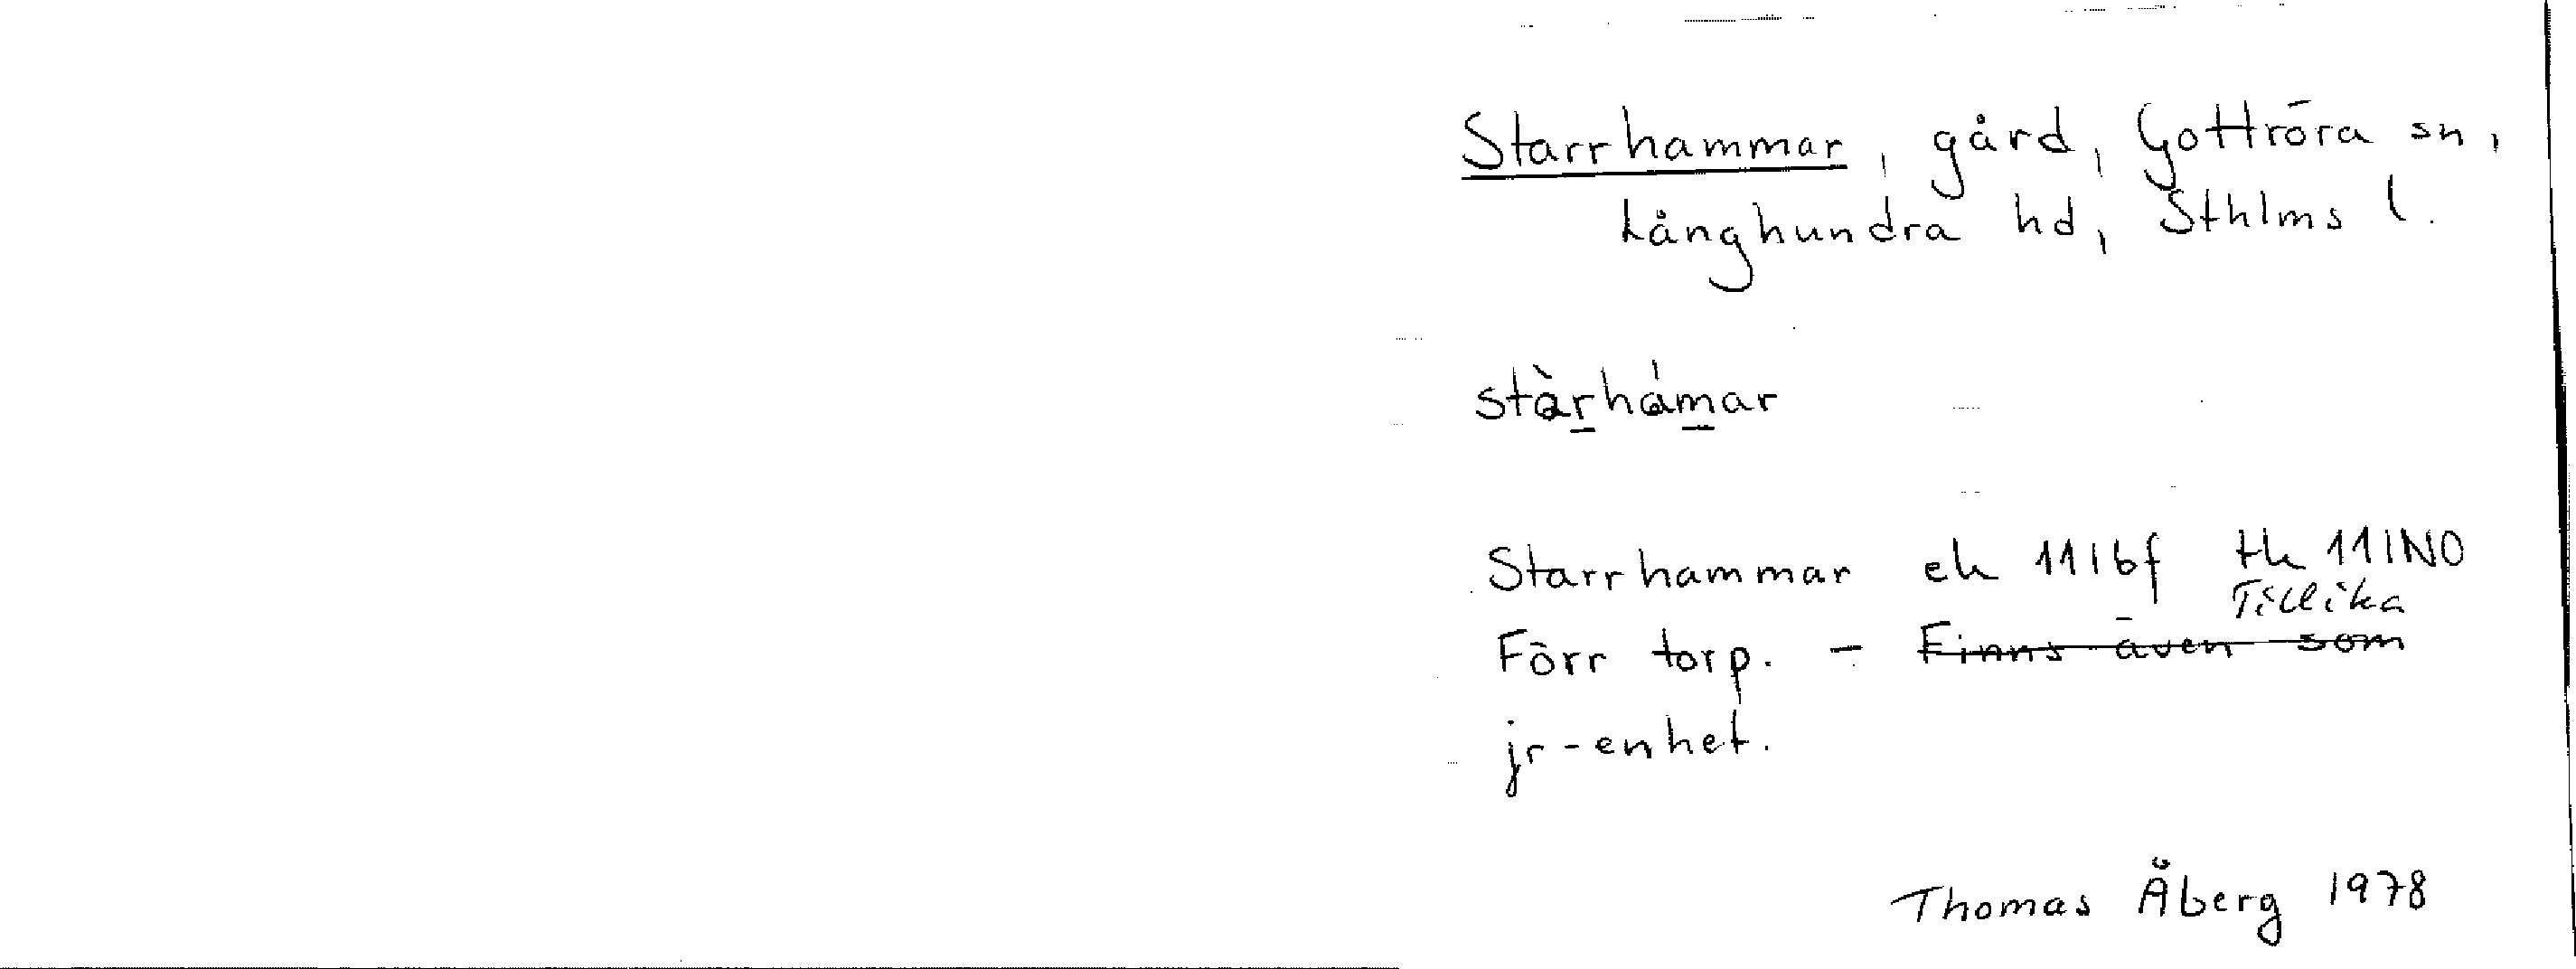 Starrhammar, gård, Gottröra sn,
Långhundra hd, Sthlms l.
stàrhámar
Starrhammar ek 11I6f tk 11INO
Tillika
Förr torp. - Finns även som
jr-enhet.
Thomas Åberg 1978